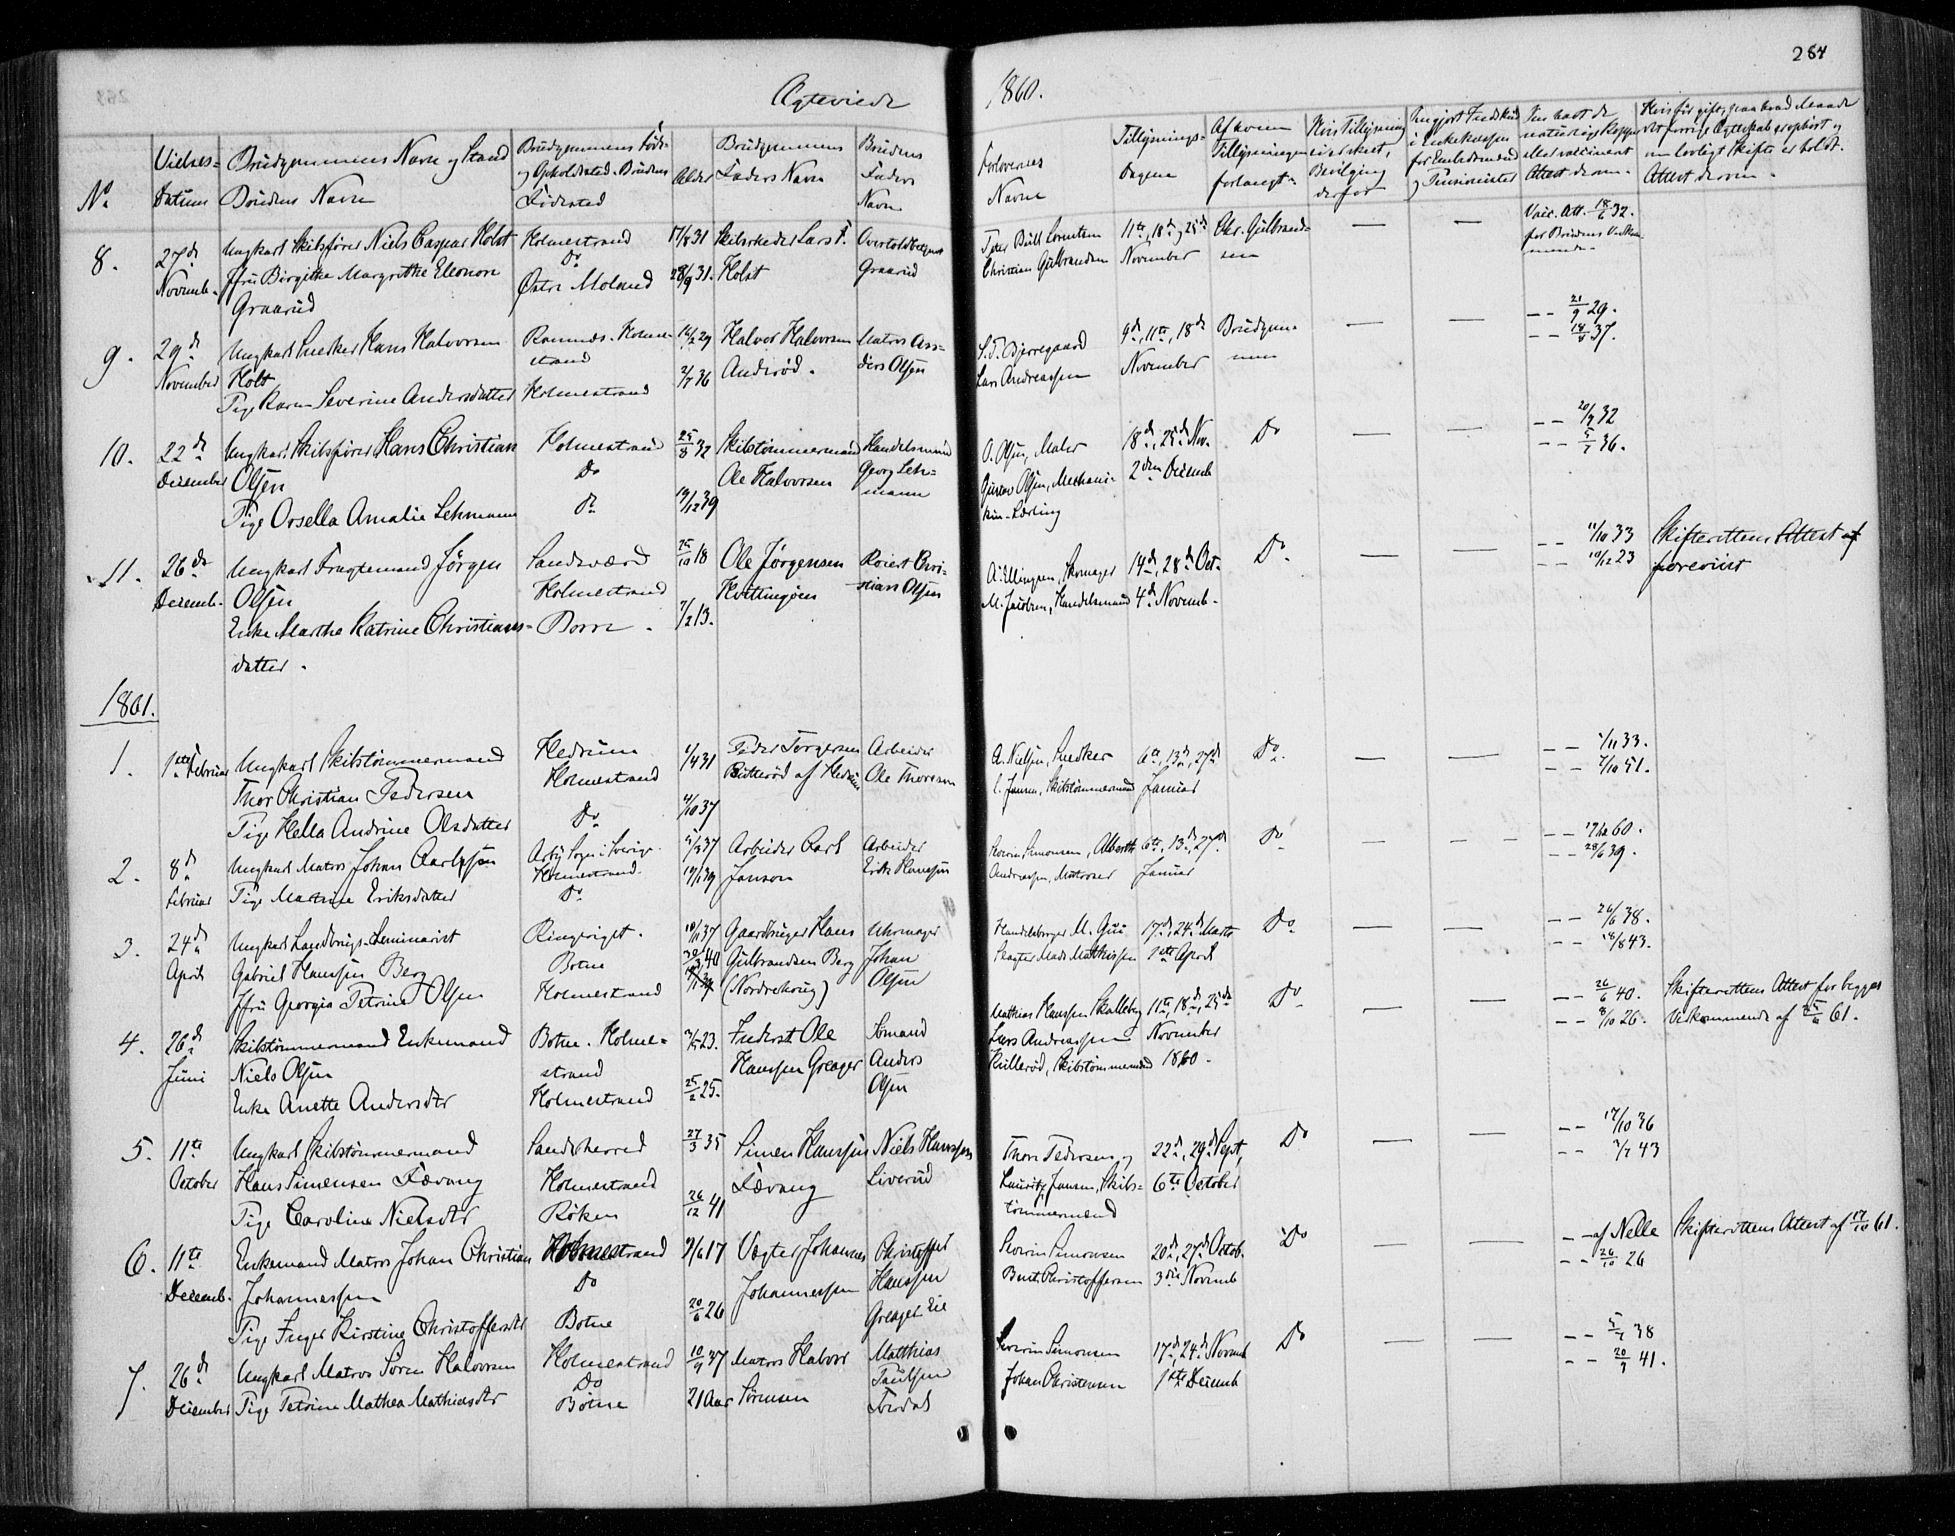 284
Ægteviede
1860.
No
Vielses-
Datum
Brudgommens Navn og Stand
Brudens Navn
Brudgommens Føde-
og Opholdssted. Brudens
Fødested
Alder
Brudgommens
Faders Navn
Brudens
Faders
Navn
Forlovernes
Navne
Tillysnings-
Dagene
Af hvem
Tillysningen
forlangt
Hvis Tillysning
ei er skeet,
Bevilgning
derfor
8.
27de
Novemb.
Ungkarl Skibsfører Niels Caspar Holst
Jfru Birgitte Margrethe Eleonore
Graarud
Holmestrand
Do
Østre Moland
17/8 31
28/9 31.
Skibsrheder Lars F.
Holst
Overtoldbetjent
Graarud
Peter Bull Lorentzen
Christian Gulbrandsen
11te, 18de, 25de
November
Chr. Gulbrand-
sen
Vacc. Att. 18/6 32.
for Brudens Vedkom-
mende
9.
29de
November
Ungkarl Snedker Hans Halvorsen
Holt
Tige Karen Severine Andersdatter
Ramnæs. Holme-
strand
Holmestrand
14/2 29
2/7 36
Halvor Halvorsen
Anderød.
Matros An-
ders Olsen
S. T. Bjerregaard
Lars Andreassen
9de, 11te, 18de
November
Brudgom-
men
— — 21/9 29.
— — 14/4 37.
10.
22de
December
Ungkarl Skibsfører Hans Christian
Olsen
Pige Orsella Amalie Lehmann
Holmestrand
Do
Do
25/8 32
19/12 39
Skibstømmermand
Ole Halvorsen
Handelsmand
Georg Leh-
mann
O. Olsen, Maler
Gustav Olsen, Mechani-
kus-Lærling
18de, 25de Nov.
2den Decemb
Do
— — 20/9 32
— — 5/7 36.
11.
26de
Decemb.
Ungkarl Fragtemand Jörgen
Olsen
Enke Marthe Katrine Christians-
datter.
Sandsværd
Holmestrand
Borre
25/10 18
7/2 13.
Ole Jørgensen
Hvittingøen
Roiert Chri-
stian Olsen
A. Ellingsen, Skomager
M. Jacobsen, Handelsmand
14de, 28de Oct.
4de Novemb.
Do
— — 11/10 33
— — 10/12 23
Skifterettens Attest af
foreviist
1861.
1.
1ste Februar
Ungkarl Skibstømmermand
Thor Christian Pedersen
Pige Hella Andrine Olsdatter
Hedrum
Holmestrand
Do
1/4 31
4/10 37
Peder Torgersen
Bitterød af Hedrum
Arbeider
Ole Thoresen
A. Nielsen, Snedker
C. Jansen, Skibstømmermand
6te, 13de, 27de
Januar
Do
— — 1/11 33.
— — 7/10 51.
2.
8de
Februar
Ungkarl Matros Johan Carlsen
Pige Martine Eriksdatter
Arby Sogn i Sverige.
Holmestrand
Do
5/3 37
19/1 39
Arbeider Carl
Janson
Arbeider
Erik Hanssen
Severin Simonsen, Alberth
Andreassen, Matroser
6te, 13de, 27de
Januar
Do
— — 17/12 60.
— — 28/6 39.
3.
24de
April
Ungkarl Landbrugs-Seminarist
Gabriel Hanssen Berg
Jfru Georgia Petrine Olsen
Ringeriget.
Botne
Holmestrand
10/11 37
30/3 40
Gaardbruger Hans
Gulbrandsen Berg
(Norderhoug)
Uhrmager
Johan
Olsen
Handelsborger M. Gui
Slagter Mads Mathissen
17de, 24de Marts
1ste April
Do
— — 26/6 38.
— — 18/8 43.
4.
26de
Juni
Skibstømmermand Enkemand
Niels Olsen
Enke Anette Andersdtr
Botne. Holme-
strand
Holmestrand
3/5 23.
25/2 25.
Inderst Ole
Hanssen Greager
Sømand
Anders
Olsen
Mathias Hanssen Skalleberg
Lars Andreassen
Hillerød, Skibstømmermænd
11te, 18de, 25de
November
1860.
Do
— — 26/6 40.
— — 8/10 26.
Skifterettens Attest for begges
Vedkommende af 25/6 61.
5.
11te
October
Ungkarl Skibstømmermand
Hans Simensen Fævang
Pige Caroline Nielsdtr
Sandeherred
Holmestrand
Röken
27/3 35
26/12 41
Simen Hanssen
Fævang
Niels Hanssen
Liverud
Thore Pedersen og
Lauritz Jansen, Skibs-
tømmermænd
22de, 29de Sept,
6te October
Do
— — 17/10 36
— — 3/7 43
6.
11te
Decemb.
Enkemand Matros Johan Christian
Johannessen
Pige Inger Kirstine Christoffersdtr
Holmestrand
Do
Botne
9/6 17
20/6 26
Vægter Johannes
Johannessen
Christoffer
Hanssen
Greager Eie
Severin Simonsen
Bent Christoffersen
20de, 27de Octob.
3die Novemb
Do
— — af Nelle
— — 26/10 26
Skifterettens Attest af 17/10 61.
7.
26de
December
Ungkarl Matros Søren Halvorsen
Pige Petrine Mathea Mathiasdtr
Holmestrand
Do
Botne
10/9 37
21 Aar
Matros Halvor
Sørensen
Matthias
Paulsen
Fosdal
Severin Simonsen
Johan Christensen
17de, 24de Novemb
1ste Decemb
Do
— — 5/7 38
— — 20/9 41.